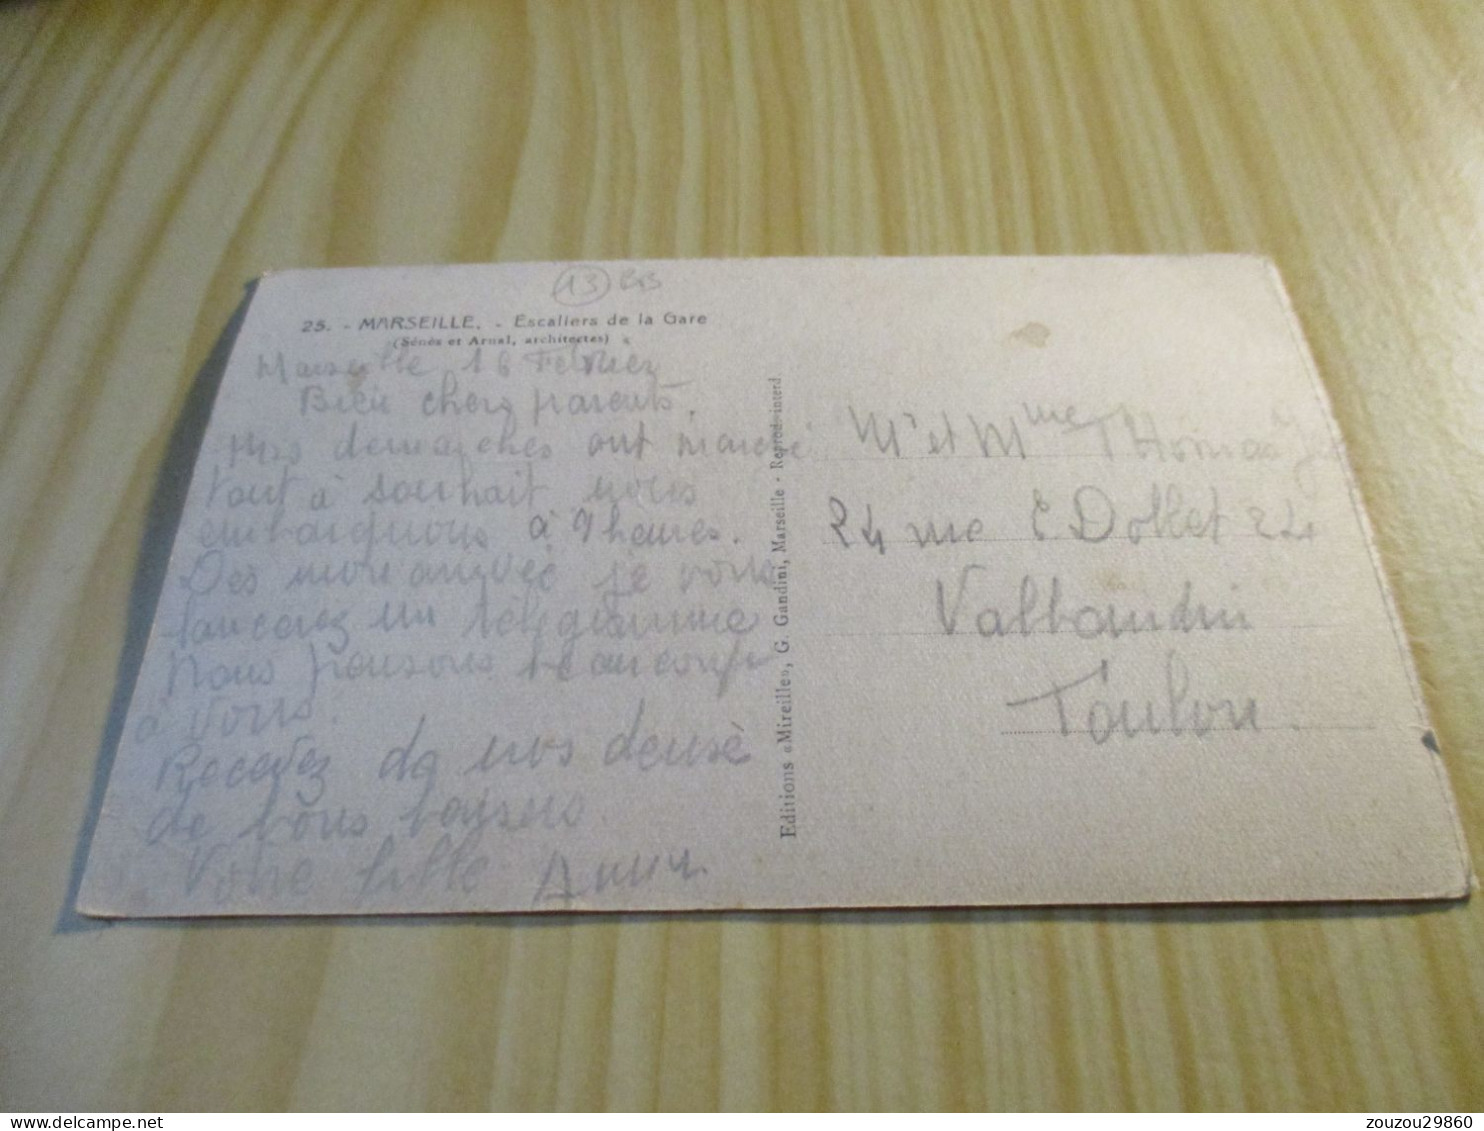 13
25. - MARSEILLE. - Escaliers de la Gare
(Sénès et Arnal, architectes)
Marseille 16 Fevrier
Bien chers parents.
Mes demarches ont marché
tout à souhait nous
embarquons à 9 heures.
Des mon arrivée je vous
lancerez un telegramme
Nous pensons beaucoup
à vous.
Recevez de nos deuse
de bons baysers
Votre fille
Editions «Mireille», G. Gandini, Marseille - Reprod. interd
Mr et Mme THomas
24 rue E Dollet 24
Valbaudin
Toulon.
zouzou29860